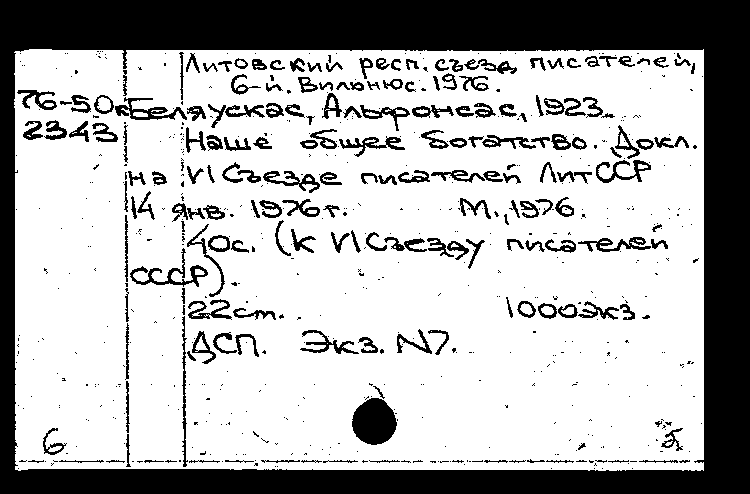 Литовский респ. съезд писателей,
6-й. Вильнюс. 1976.
76-50к Беляускас, Альфонсас, 1923.
2343 Наше общее богатство. Докл.
на VI Съезде писателей ЛитССР
14 янв. 1976г. М., 1976.
40с. (К VI Съезду писателей
СССР).
22см. 1000экз.
ДСП. Экз. N7.
6